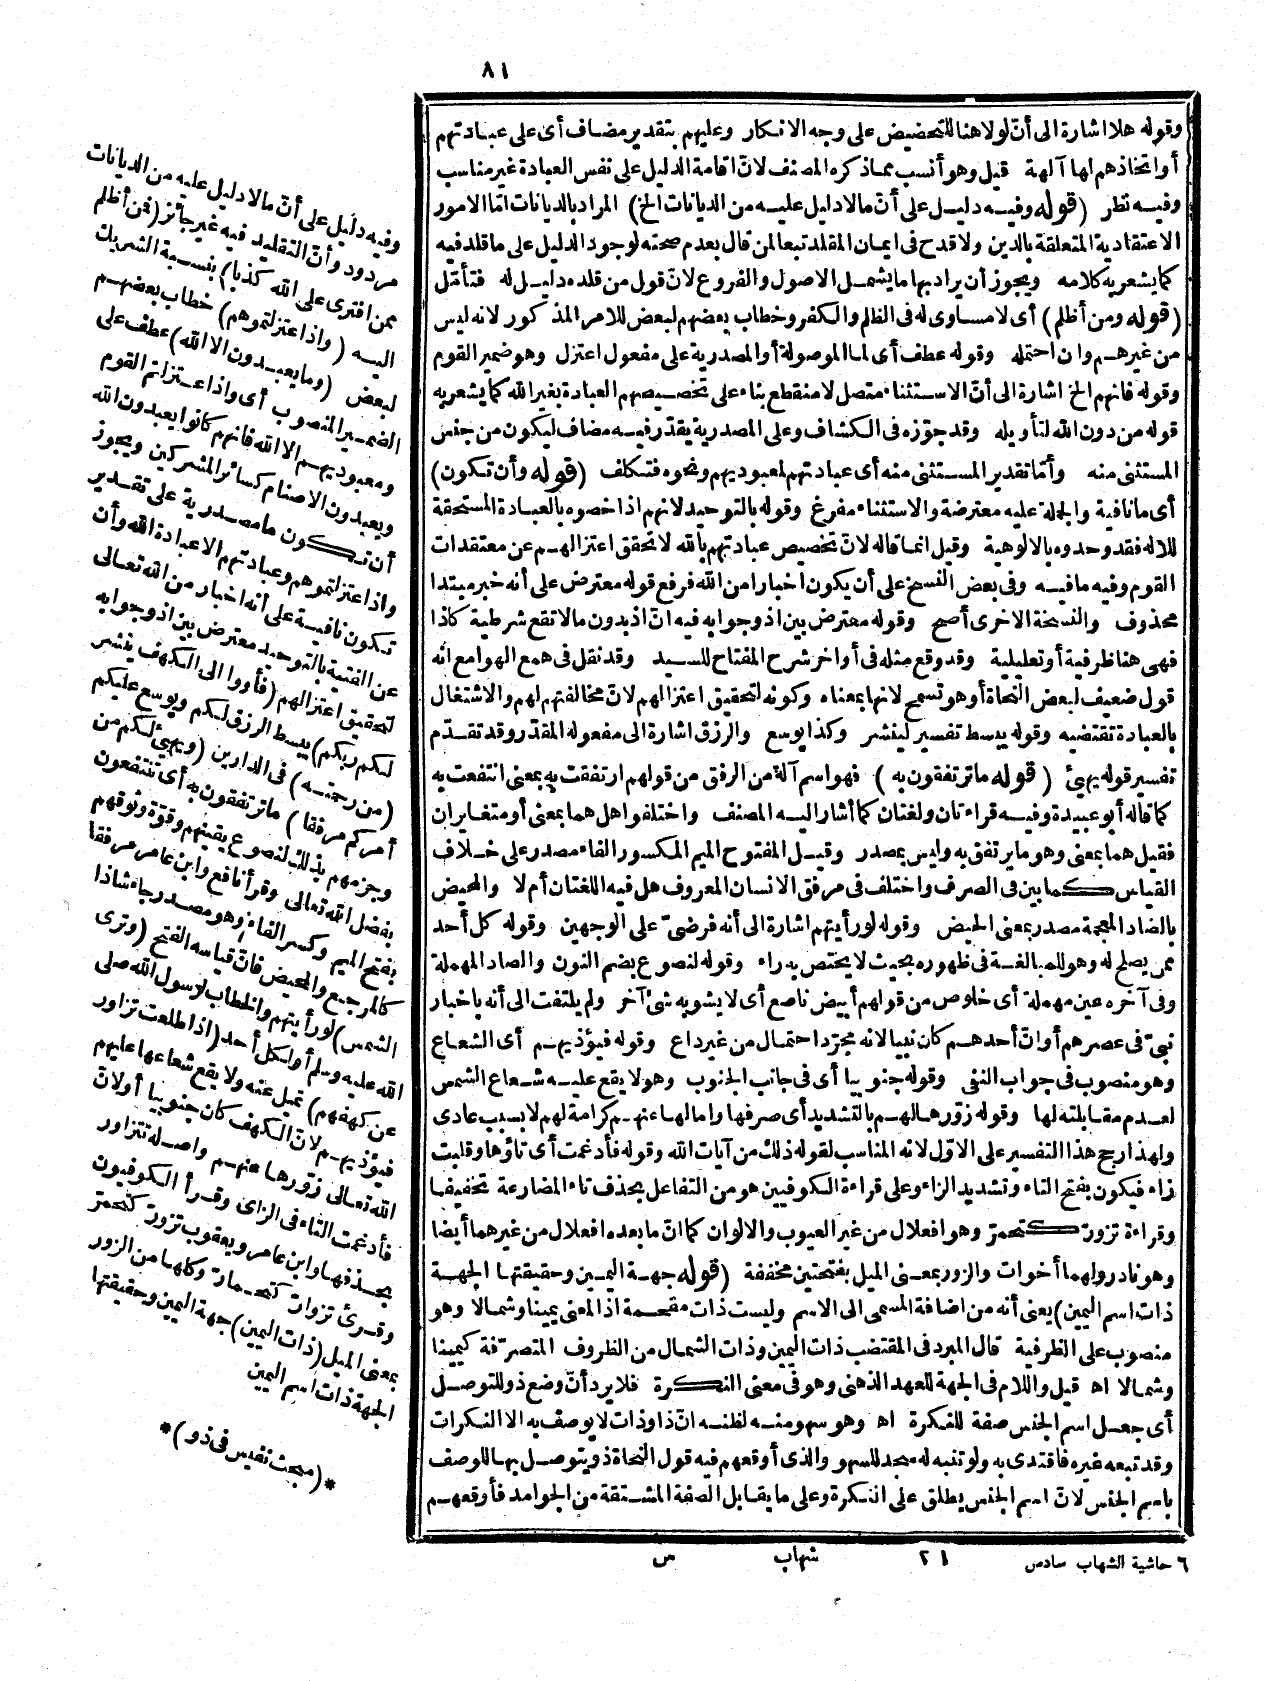 ٨١
وقوله هلا اشارة الى أنّ لولا هنا للتحضيض على وجه الانكار وعليهم بتقدير مضاف أى على عبادتهم
أو اتخاذهم لها آلهة قيل وهو أنسب مما ذكره المصنف لانّ اقامة الدليل على نفس العبادة غير مناسب
وفيه نظر (قوله وفيه دليل على أنّ ما لا دليل عليه من الديانات الخ) المراد بالديانات امّا الامور
الاعتقادية المتعلقة بالدين ولا قدح فى ايمان المقلد تبعا لمن قال بعدم صحته لوجود الدليل على ما قلد فيه
كما يشعر به كلامه ويجوز أن يراد بها ما يشمل الاصول والفروع لانّ قول من قلده دليل له فتأمّل
(قوله ومن أظلم) أى لا مساوى له فى الظلم والكفر وخطاب بعضهم لبعض للامر المذكور لانه ليس
من غيرهم وان احتمله وقوله عطف أى لما الموصولة أو المصدرية على مفعول اعتزل وهو ضمير القوم
وقوله فانهم الخ اشارة الى أنّ الاستثناء متصل لا منقطع بناء على تخصيصهم العبادة بغير الله كما يشعر به
قوله من دون الله لتأويله وقد جوّزه فى الكشاف وعلى المصدرية يقدّر فيه مضاف ليكون من جنس
المستثنى منه وأمّا تقدير المستثنى منه أى عبادتهم لمعبوديهم ونحوه فتكلف (قوله وأن تكون)
أى ما نافية والجلة عليه معترضة والاستثناء مفرغ وقوله بالتوحيد لانهم اذا خصوه بالعبادة المستحقة
للاله فقد وحدوه بالالوهية وقيل انما قاله لانّ تخصيص عبادتهم بالله لا تحقق اعتزالهم عن معتقدات
القوم وفيه ما فيه وفى بعض النسخ على أن يكون اخبارا من الله فرفع قوله معترض على أنه خبر مبتدا
محذوف والنسخة الاخرى أصح وقوله معترض بين اذ وجوابه فيه انّ اذ بدون ما لا تقع شرطية كاذا
فهى هنا ظرفية أو تعليلية وقد وقع مثله فى أواخر شرح المفتاح للسيد وقد نقل فى همع الهوامع انه
قول ضعيف لبعض النحاة أو هو تسمح لانها بمعناه وكونه لتحقيق اعتزالهم لانّ مخالفتهم لهم والاشتغال
بالعبادة تقتضيه وقوله يبسط تفسير لينشر وكذا يوسع والرزق اشارة الى مفعوله المقدر وقد تقدّم
تفسير قوله يهيئ (قوله ما ترتفقون به) فهو اسم آلة من الرفق من قولهم ارتفقت به بمعنى انتفعت به
كما قاله أبو عبيدة وفيه قراءتان ولغتان كما أشار اليه المصنف واختلفوا هل هما بمعنى أو متغايران
فقيل هما بمعنى وهو ما يرتفق به وليس بمصدر وقيل المفتوح الميم المكسور الفاء مصدر على خلاف
القياس كما بين فى الصرف واختلف فى مرفق الانسان المعروف هل فيه اللغتان أم لا والمحيض
بالضاد المعجمة مصدر بمعنى الحيض وقوله لو رأيتهم اشارة الى أنه فرضىّ على الوجهين وقوله كل أحد
ممن يصلح له وهو للمبالغة فى ظهوره بحيث لا يختص به راء وقوله لنصوع بضم النون والصاد المهملة
وفى آخره عين مهملة أى خلوص من قولهم أبيض ناصع أى لا يشوبه شئ آخر ولم يلتفت الى أنه باخبار
نبىّ فى عصرهم أو انّ أحدهم كان نبيا لانه مجرّد احتمال من غير داع وقوله فيؤذيهم أى الشعاع
وهو منصوب فى جواب النفى وقوله جنوبيا أى فى جانب الجنوب وهو لا يقع عليه شعاع الشمس
لعدم مقابلته لها وقوله زوّرها لهم بالتشديد أى صرفها وامالها عنهم كرامة لهم لا بسبب عادى
ولهذا ارجح هذا التفسير على الاوّل لانه المناسب لقوله ذلك من آيات الله وقوله فأدغمت أى تاؤها وقلبت
زاء فيكون بفتح التاء وتشديد الزاء وعلى قراءة الكوفيين هو من التفاعل بحذف تاء المضارعة تخفيفا
وقراءة تزورّ كتحمرّ وهو افعلال من غير العيوب والالوان كما انّ ما بعده افعلال من غيرهما أيضا
وهو نادر ولهما أخوات والزور بمعنى الميل بفتحتين مخففة (قوله جهة اليمين وحقيقتها الجهة
ذات اسم اليمين) يعنى أنه من اضافة المسمى الى الاسم وليست ذات مقحمة اذ المعنى يمينا وشمالا وهو
منصوب على الظرفية قال المبرد فى المقتضب ذات اليمين وذات الشمال من الظروف المتصرّفة كيمينا
وشمالا اه قيل واللام فى الجهة للعهد الذهنى وهو فى معنى النكرة فلا يرد أنّ وضع ذو للتوصل
أى جعل اسم الجنس صفة للنكرة اه وهو سهو ومنه لظنه انّ ذا وذات لا يوصف به الا النكرات
وقد تبعه غيره فاقتدى به ولو تنبه له سجد للسهو والذى أوقعهم فيه قول النحاة ذو يتوصل بها للوصف
باسم الجنس لانّ اسم الجنس يطلق على النكرة وعلى ما يقابل الصفة المشتقة من الجوامد فأوقعهم
وفيه دليل على أنّ ما لا دليل عليه من الديانات
مردود وأنّ التقليد فيه غير جائز (فمن أظلم
ممن افترى على الله كذبا) بنسبة الشريك
اليه (واذ اعتزلتموهم) خطاب بعضهم
لبعض (وما يعبدون الا الله) عطف على
الضمير المنصوب أى واذ اعتزلتم القوم
ومعبوديهم الا الله فانهم كانوا يعبدون الله
ويعبدون الاصنام كسائر المشركين ويجوز
أن تكون ما مصدرية على تقدير
واذ اعتزلتموهم وعبادتهم الا عبادة الله وأن
تكون نافية على أنه اخبار من الله تعالى
عن الفتية بالتوحيد معترض بين اذ وجوابه
لتحقيق اعتزالهم (فأووا الى الكهف ينشر
لكم ربكم) يبسط الرزق لكم ويوسع عليكم
(من رحمته) فى الدارين (ويهيئ لكم من
أمركم مرفقا) ما ترتفقون به أى تنتفعون
وجزمهم بذلك لنصوع يقينهم وقوّة وثوقهم
بفضل الله تعالى وقرأ نافع وابن عامر مرفقا
بفتح الميم وكسر الفاء وهو مصدر جاء شاذا
كالمرجع والمحيض فانّ قياسه الفتح (وترى
الشمس) لو رأيتهم والخطاب لرسول الله صلى
الله عليه وسلم أو لكل أحد (اذا طلعت تزاور
عن كهفهم) تميل عنه ولا يقع شعاعها عليهم
فيؤذيهم لانّ الكهف كان جنوبيا أو لانّ
الله تعالى زوّرها عنهم وأصله تتزاور
فأدغمت التاء فى الزاى وقرأ الكوفيون
بحذفها وابن عامر ويعقوب تزورّ كتحمرّ
وقرئ تزوارّ كتحمارّ وكلها من الزور
بمعنى الميل (ذات اليمين) جهة اليمين وحقيقتها
الجهة ذات اسم اليمين
*(مبحث نفيس فى ذو)*
٦ حاشية الشهاب سادس ٢١ شهاب س